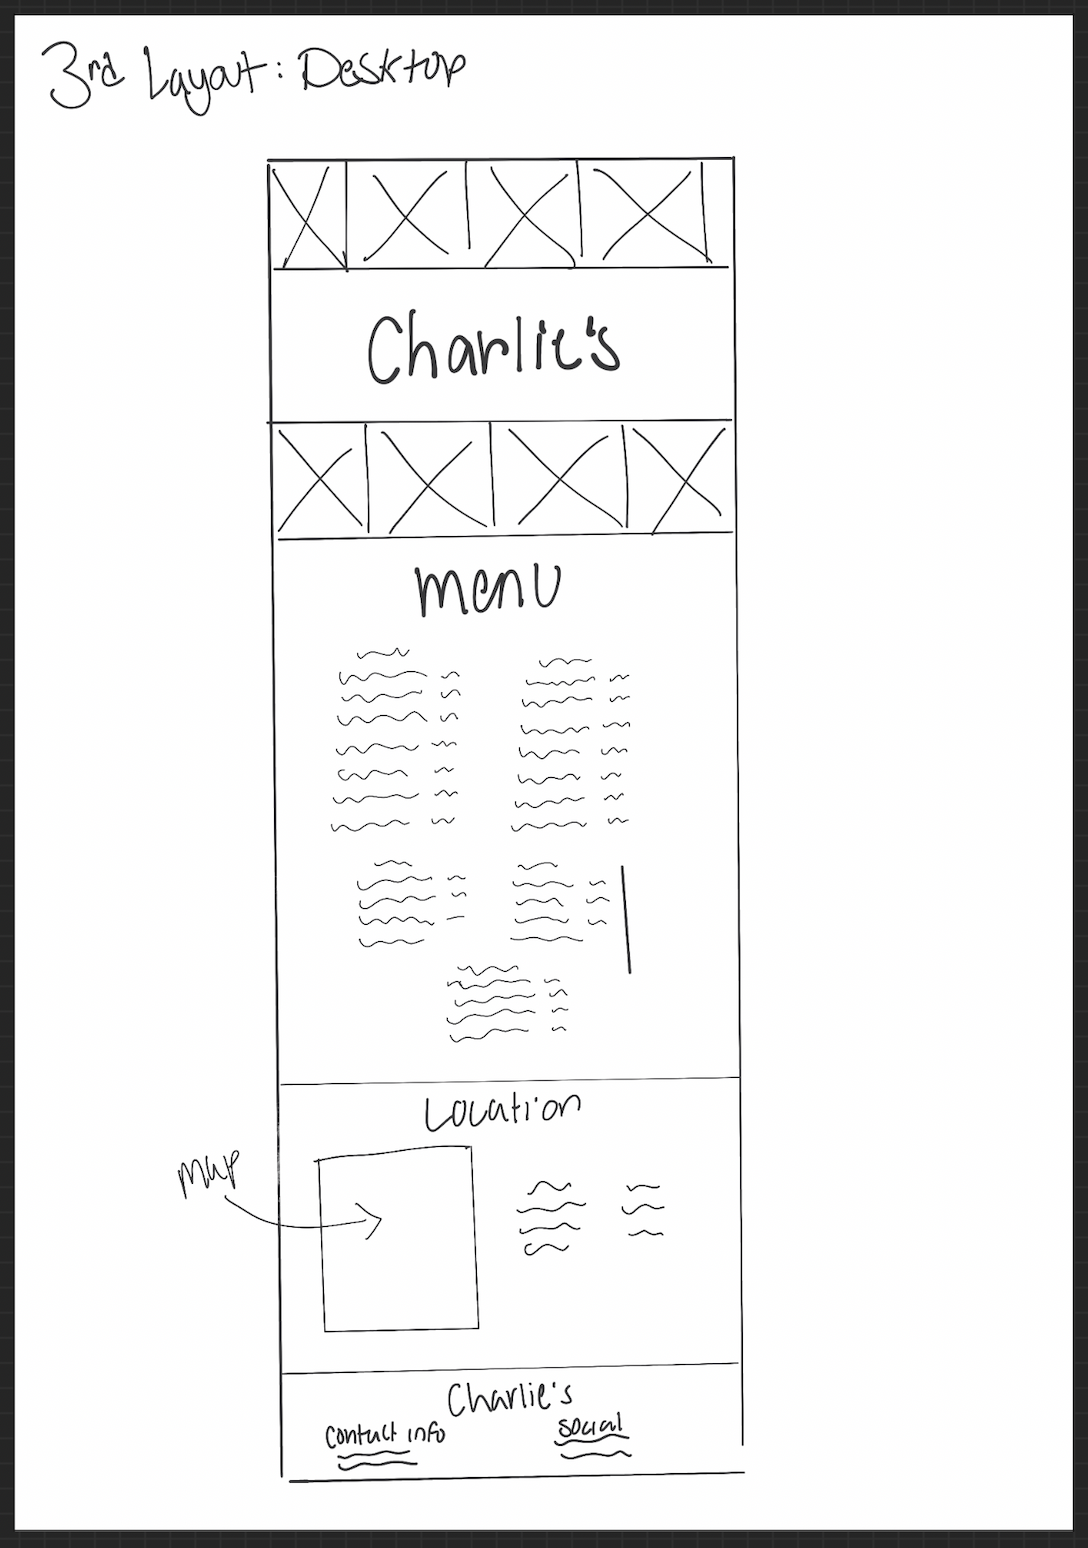 3rd Layout: Desktop
Charlie's
menu
Location
map
Charlie's
contact info
social